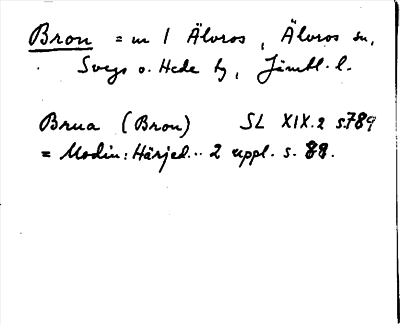 Bron = m / Älvros, Älvros sn,
Svegs o. Hede tg, Jämtl. l.
Brua (Bron) SL XIX.2 s.789
= Modin: Härjed... 2 uppl. s. 88.